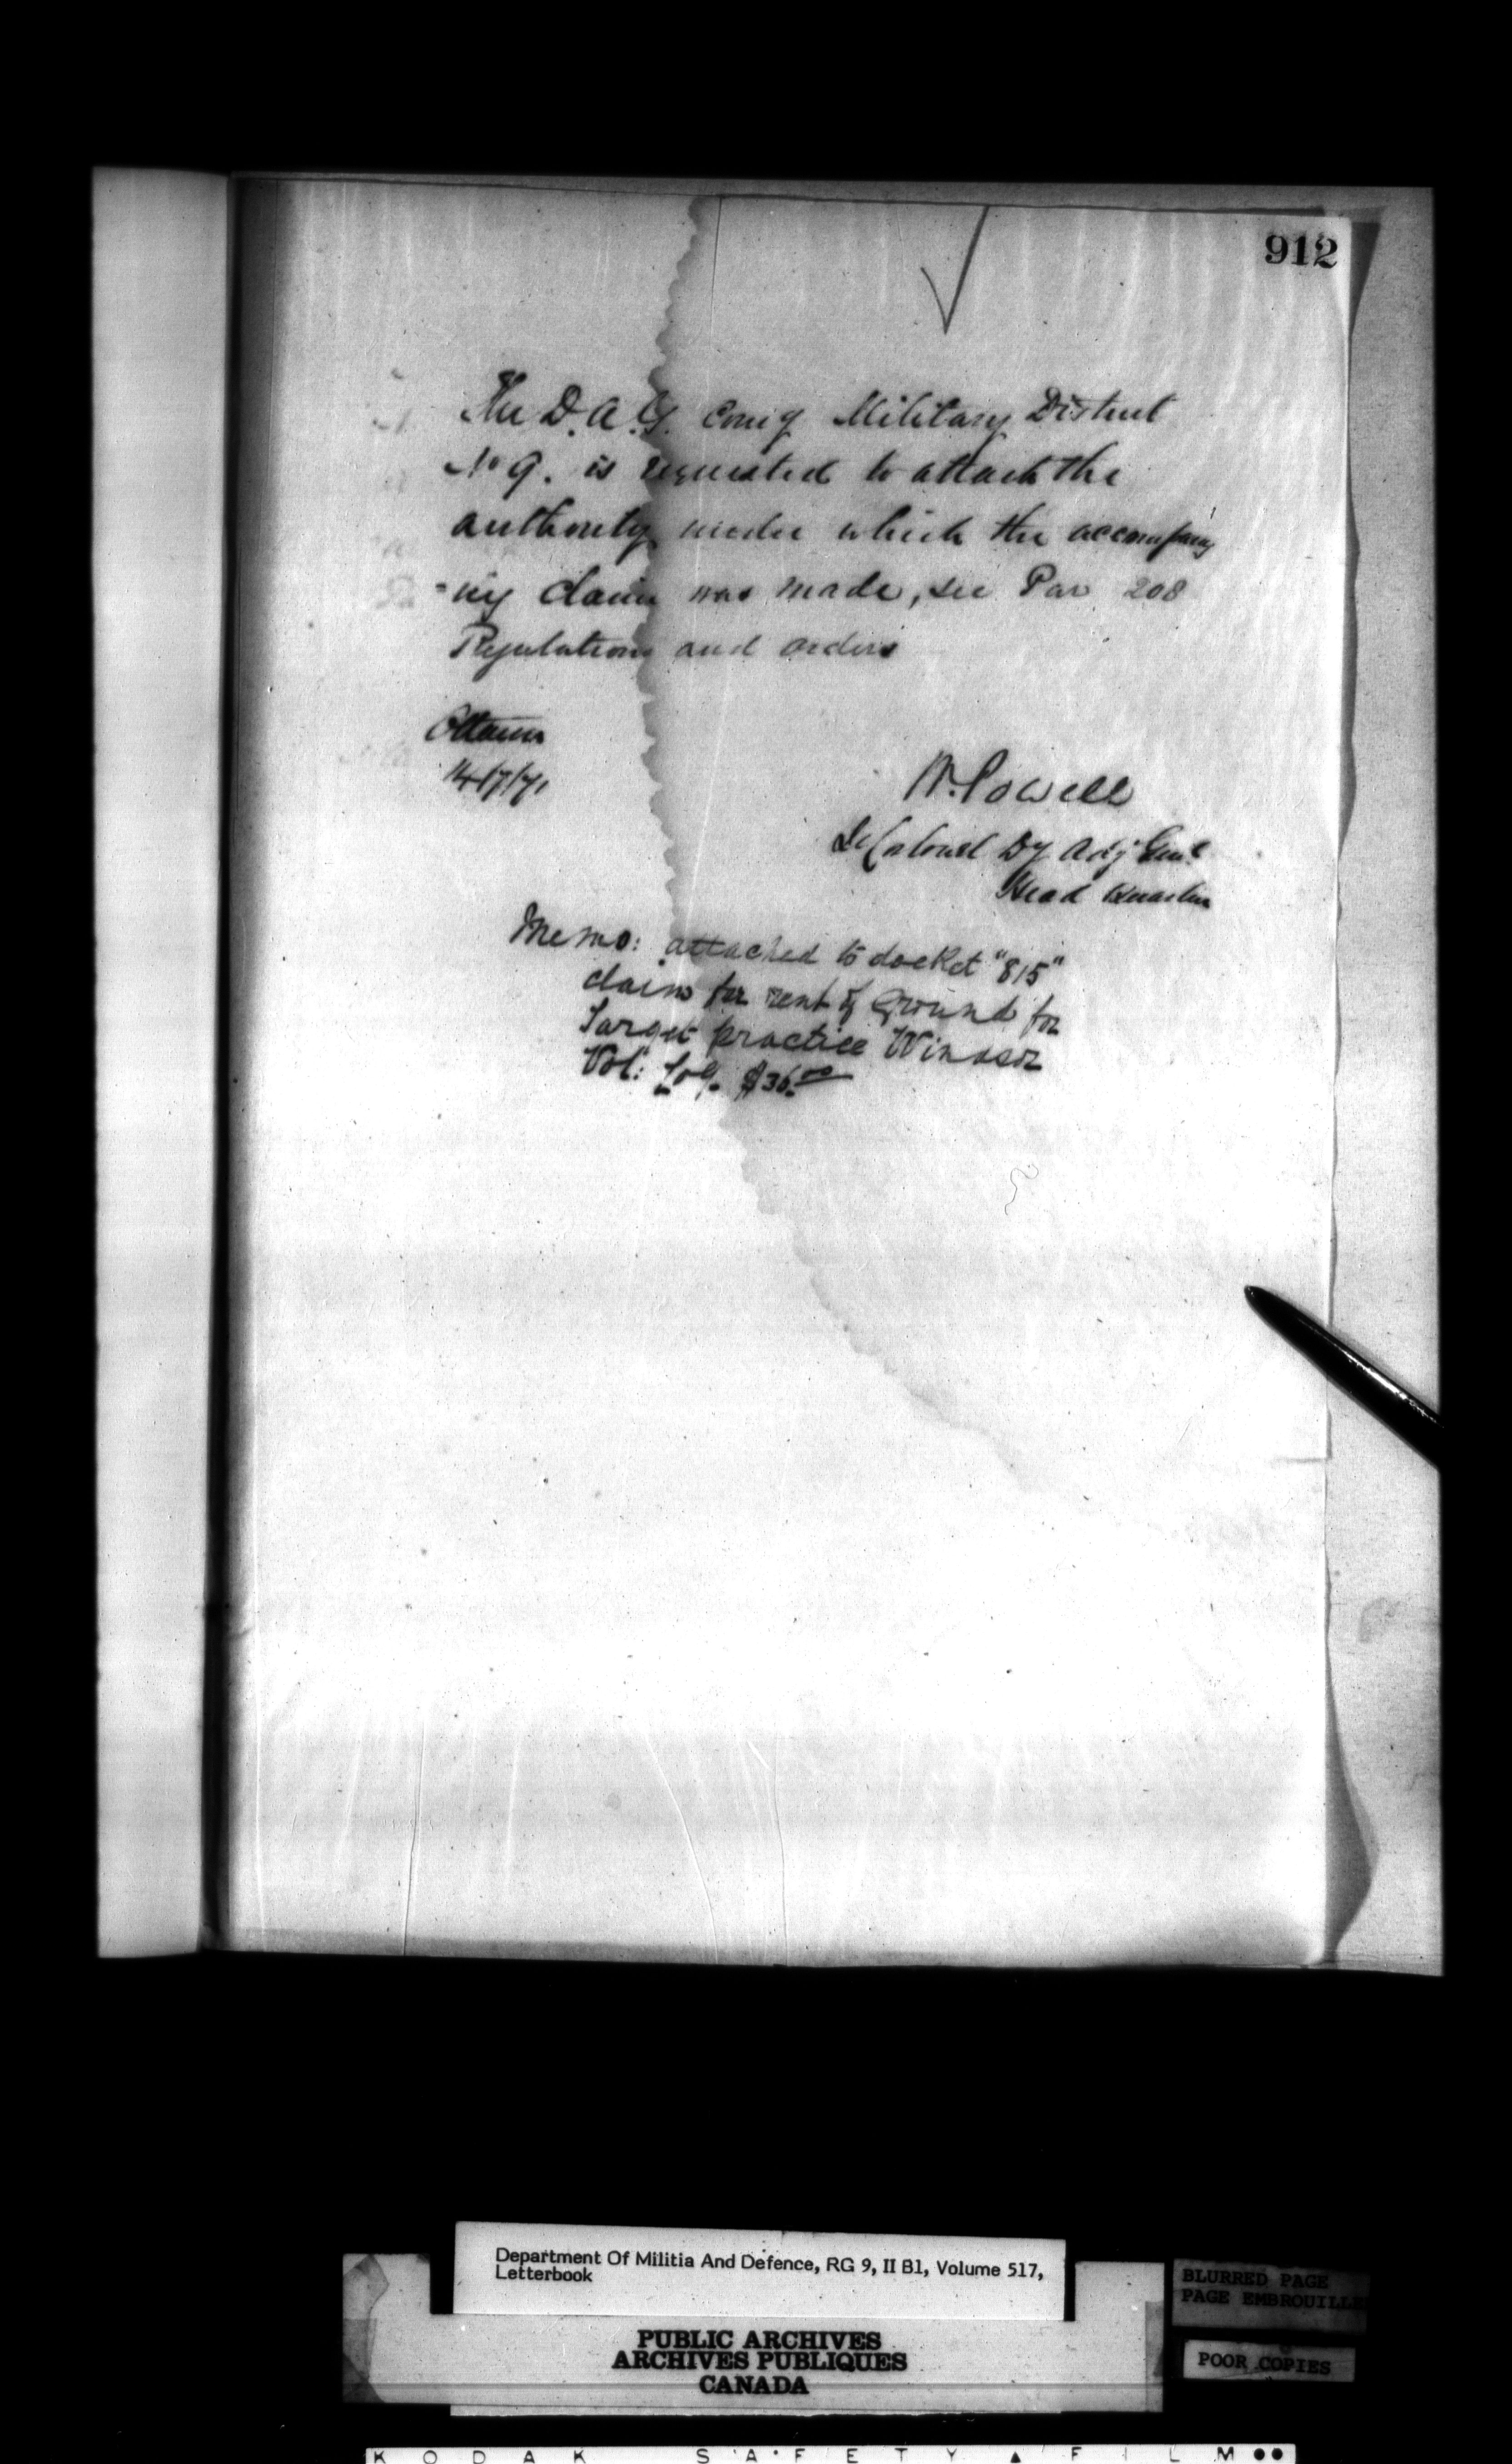 912
The D.A.G. Comg Military District
No 9. is requested to attach the
authority under which the accompany
-ing claim was made, see Par 208
Regulations and orders
Ottawa
14/7/71
W. Powell
Lt Colonel Dy Adj Genl
Head Quarters
Memo: attached to docket "815"
claim for rent of Ground for
Target practice Windsor
Vol: $36.00
Department Of Militia And Defence, RG 9, II B1, Volume 517,
Letterbook
PUBLIC ARCHIVES
ARCHIVES PUBLIQUES
CANADA
BLURRED PAGE
PAGE EMBROUILLE
POOR COPIES
KODAK SAFETY ▲ FILM ●●